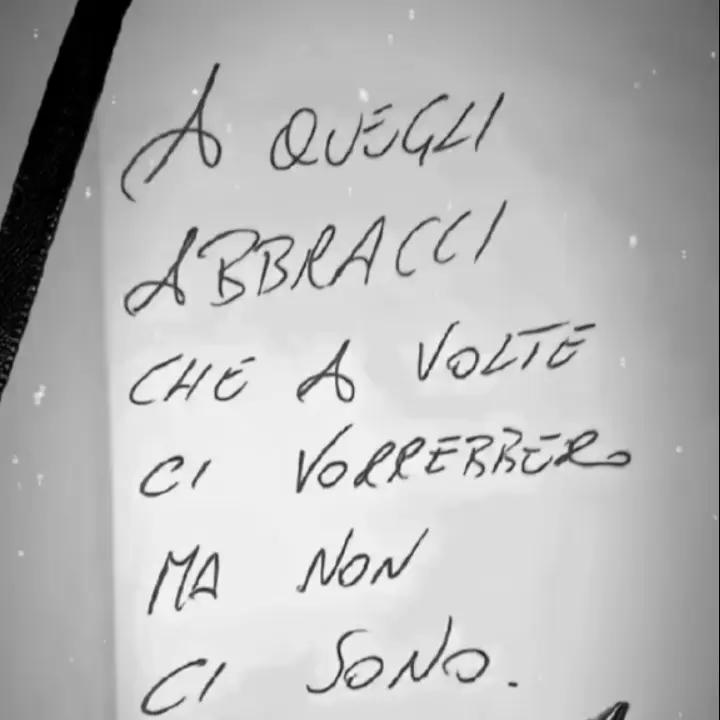 A QUEGLI
ABBRACCI
CHE A VOLTE
CI VORREBBERO
MA NON
CI SONO.